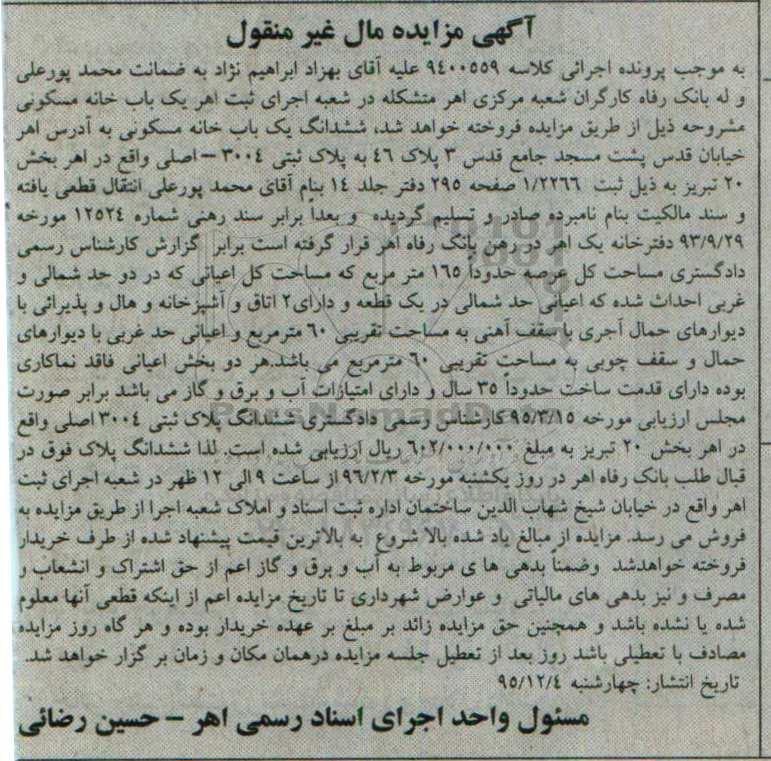 آگهی مزایده مال غیر منقول
به موجب پرونده اجرائی کلاسه ٩٤٠٠٥٥٩ علیه آقای بهزاد ابراهیم نژاد به ضمانت محمد پورعلی
و له بانک رفاه کارگران شعبه مرکزی اهر متشکله در شعبه اجرای ثبت اهر یک باب خانه مسکونی
مشروحه ذیل از طریق مزایده فروخته خواهد شد، ششدانگ یک باب خانه مسکونی به آدرس اهر
خیابان قدس پشت مسجد جامع قدس ٣ پلاک ٤٦ به پلاک ثبتی ٣٠٠٤ –اصلی واقع در اهر بخش
٢٠ تبریز به ذیل ثبت ١/٢٢٦٦ صفحه ٢٩٥ دفتر جلد ١٤ بنام آقای محمد پورعلی انتقال قطعی یافته
و سند مالکیت بنام نامبرده صادر و تسلیم گردیده و بعداً برابر سند رهنی شماره ١٢٥٢٤ مورخه
٩٣/٩/٢٩ دفترخانه یک اهر در رهن بانک رفاه اهر قرار گرفته است برابر گزارش کارشناس رسمی
دادگستری مساحت کل عرصه حدوداً ١٦٥ متر مربع که مساحت کل اعیانی که در دو حد شمالی و
غربی احداث شده که اعیانی حد شمالی در یک قطعه و دارای٢ اتاق و آشپزخانه و هال و پذیرائی با
دیوارهای حمال آجری با سقف آهنی به مساحت تقریبی ٦٠ مترمربع و اعیانی حد غربی با دیوارهای
حمال و سقف چوبی به مساحت تقریبی ٦٠ مترمربع می باشد.هر دو بخش اعیانی فاقد نماکاری
بوده دارای قدمت ساخت حدوداً ٣٥ سال و دارای امتیازات آب و برق و گاز می باشد برابر صورت
مجلس ارزیابی مورخه ٩٥/٣/١٥ کارشناس رسمی دادگستری ششدانگ پلاک ثبتی ٣٠٠٤ اصلی واقع
در اهر بخش ٢٠ تبریز به مبلغ ٦٠٢/٠٠٠/٠٠٠ ریال ارزیابی شده است. لذا ششدانگ پلاک فوق در
قبال طلب بانک رفاه اهر در روز یکشنبه مورخه ٩٦/٢/٣ از ساعت ٩ الی ١٢ ظهر در شعبه اجرای ثبت
اهر واقع در خیابان شیخ شهاب الدین ساختمان اداره ثبت اسناد و املاک شعبه اجرا از طریق مزایده به
فروش می رسد. مزایده از مبالغ یاد شده بالا شروع به بالاترین قیمت پیشنهاد شده از طرف خریدار
فروخته خواهدشد وضمناً بدهی ها ی مربوط به آب و برق و گاز اعم از حق اشتراک و انشعاب و
مصرف و نیز بدهی های مالیاتی و عوارض شهرداری تا تاریخ مزایده اعم از اینکه قطعی آنها معلوم
شده یا نشده باشد و همچنین حق مزایده زائد بر مبلغ بر عهده خریدار بوده و هر گاه روز مزایده
مصادف با تعطیلی باشد روز بعد از تعطیل جلسه مزایده درهمان مکان و زمان بر گزار خواهد شد.
تاریخ انتشار: چهارشنبه ٩٥/١٢/٤
مسئول واحد اجرای اسناد رسمی اهر – حسین رضائی